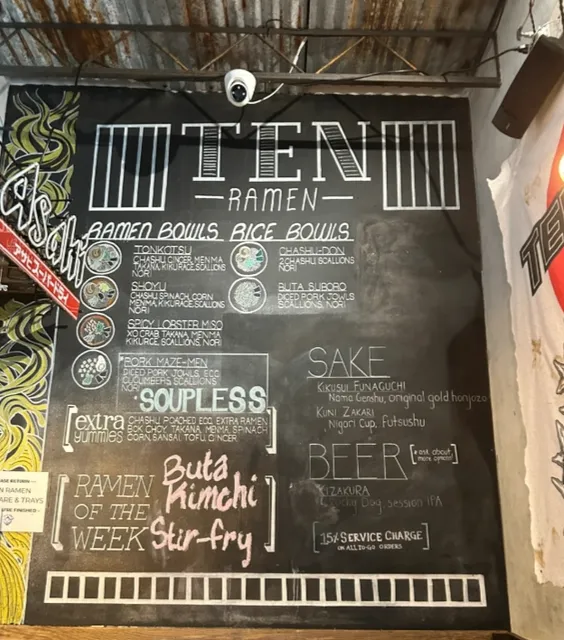 TEN
RAMEN
Asahi
アサヒスーパードライ
RAMEN BOWLS
TONKOTSU
CHASHU, GINGER, MENMA
TAKANA, KIKURAGE, SCALLIONS
NORI
SHOYU
CHASHU SPINACH, CORN
MENMA, KIKURAGE, SCALLIONS
NORI
SPICY LOBSTER MISO
XO CRAB TAKANA, MENMA
KIKURGE, SCALLIONS, NORI
PORK MAZE-MEN
DICED PORK JOWLS EGG
CUCUMBERS SCALLIONS
NORI
SOUPLESS
extra
yummies
CHASHU POACHED EGG, EXTRA RAMEN
BOK CHOY, TAKANA, MENMA, SPINACH
CORN, SANSAI, TOFU, GINGER
RAMEN
OF THE
WEEK
Buta
Kimchi
Stir-fry
RICE BOWLS
CHASHU-DON
2 CHASHU, SCALLIONS
NORI
BUTA SOBORO
DICED PORK JOWLS
SCALLIONS, NORI
SAKE
KIKUSUI FUNAGUCHI
Nama Genshu, original gold honjozo
KUNI ZAKARI
Nigori Cup, futsushu
BEER
*ask about
more options!
KIZAKURA
Lucky Dog session IPA
15% SERVICE CHARGE
ON ALL TO-GO ORDERS
RAMEN
& TRAYS
TE